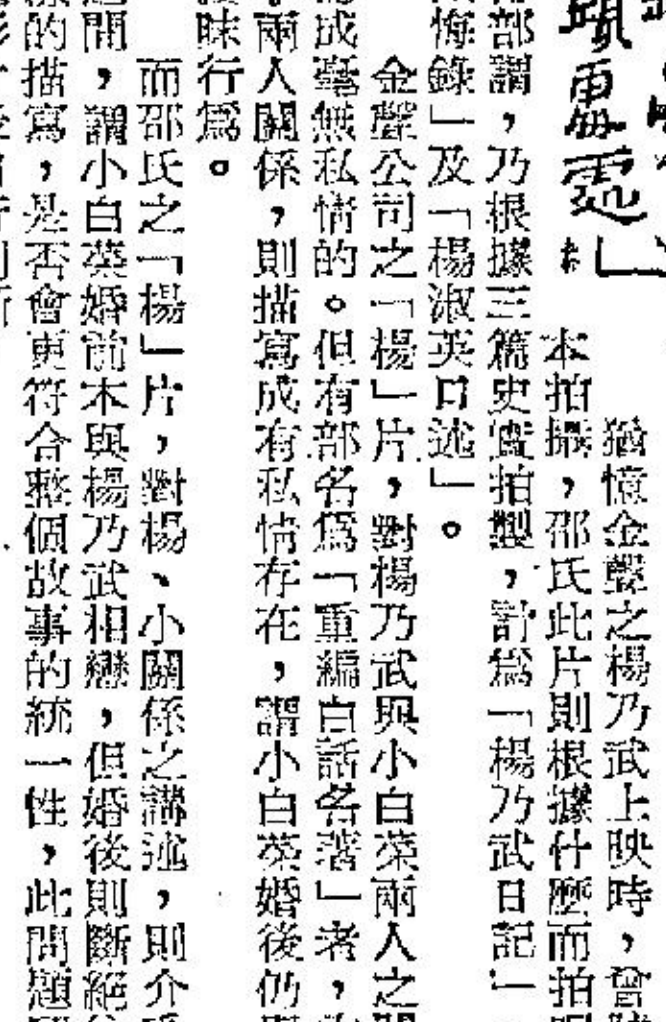 猶憶金聲之楊乃武上映時，曾
本拍攝，邵氏此片則根據什麼而拍
部謂，乃根據三篇史實拍製，計爲「楊乃武日記」
悔錄」及「楊淑英口述」。
金聲公司之「楊」片，對楊乃武與小白菜兩人之
成毫無私情的。但有部名爲「重編白話名著」者，
兩人關係，則描寫成有私情存在，謂小白菜婚後仍
昧行爲。
而邵氏之「楊」片，對楊、小關係之講述，則介
間，謂小白菜婚前木與楊乃武相戀，但婚後則斷絕
的描寫，是否會更符合整個故事的統一性，此問題